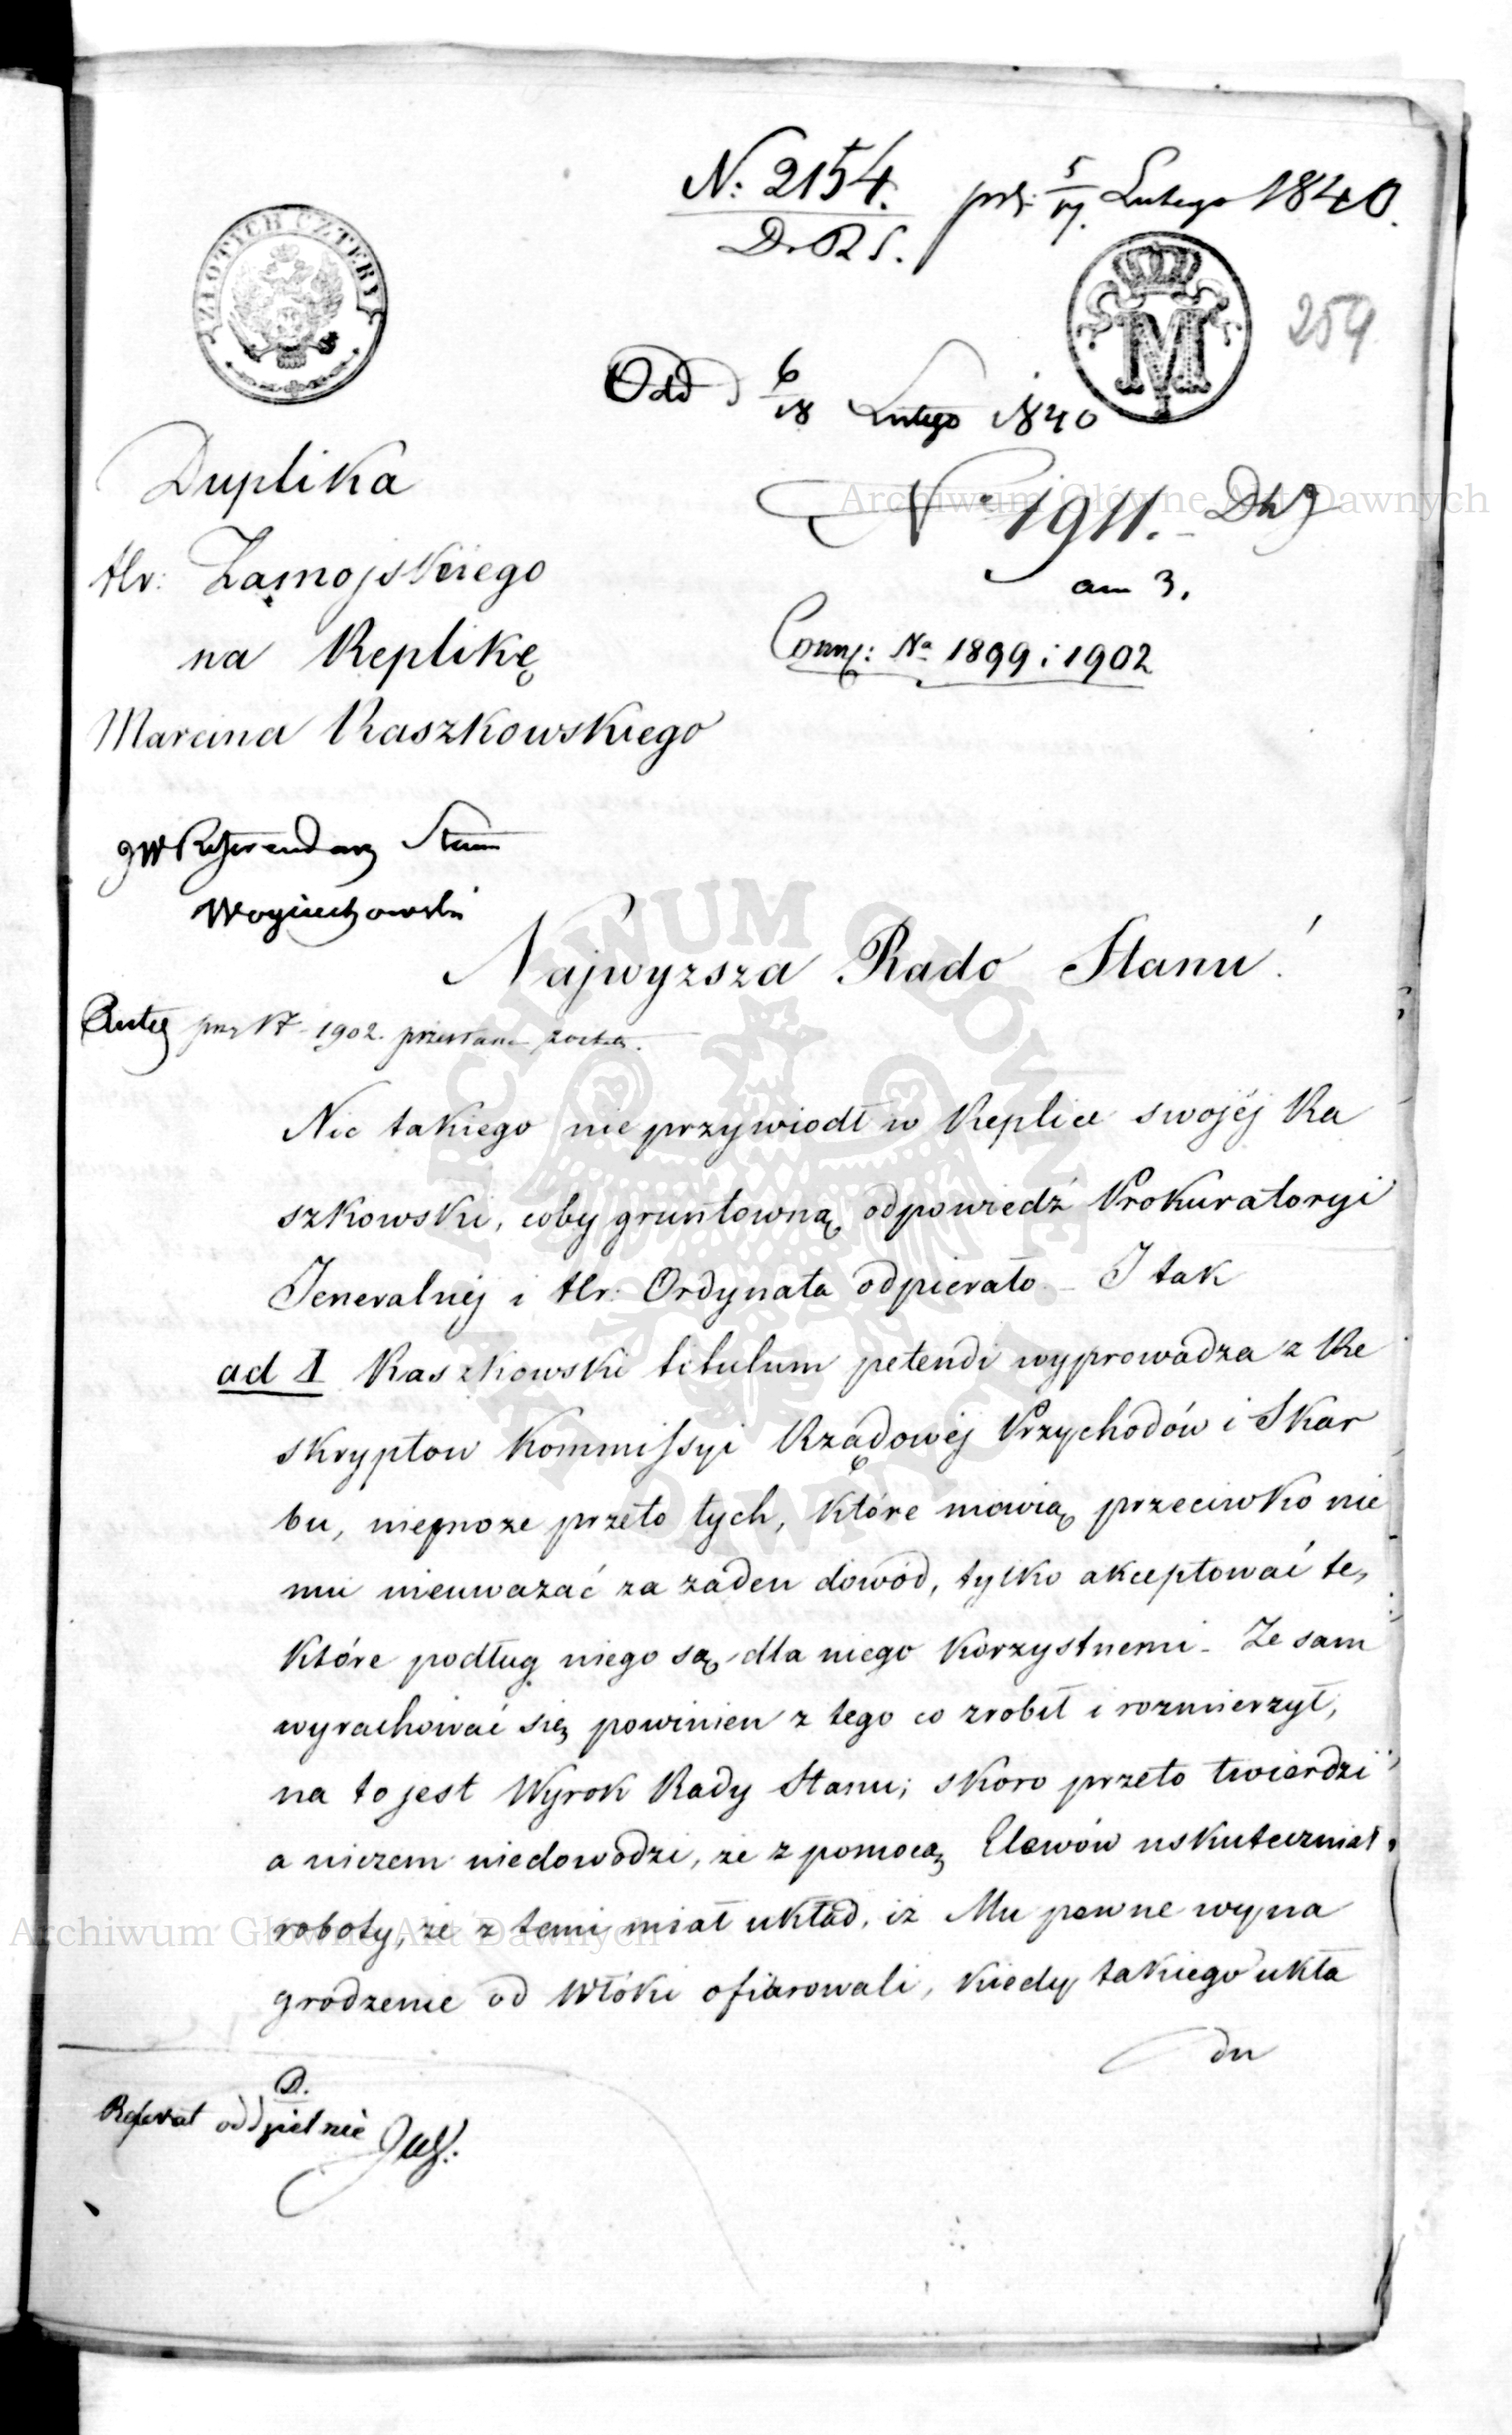 N: 2154.
D.R.S.
5/17. Lutego 1840.
ZŁOTYCH CZTERY
M
259
Odd 6/18 Lutego 1840
N 1911.
am 3.
Conn: No 1899 i 1902
Duplika
Hr: Zamojskiego
na Replikę
Marcina Raszkowskiego
JW Referendarz Stanu
Woyciechowski
Najwyzsza Rado Stanu!
przy N 1902.
Nic takiego nie przywiodł w Replice swojéj Ra
szkowski, coby gruntowną odpowiedź Prokuratoryi
Jeneralnéj i Hr: Ordynata odpierało. _ I tak
ad I Raszkowski titulum petendi wyprowadza z Re
skryptow Kommissyi Rządowéj Przychodów i Skar
bu, niemoze przeto tych, które mówią przeciwko nie
mu nieuwazać za żaden dowód, tylko akceptować te,
które podług niego są dla niego korzystnemi _ Ze sam
wyrachować się powinien z tego co zrobił i rozmierzył,
na to jest Wyrok Rady Stanu; skoro przeto twierdzi
a niczem niedowodzi, że z pomocą Elewów uskuteczniał
roboty, że z temi miał układ, iż Mu pewne wyna
grodzenie od Włóki ofiarowali, kiedy takiego ukła
du
D.
Referat oddzielnie
Archiwum Główne Akt Dawnych
Archiwum Główne Akt Dawnych
ARCHIWUM GŁÓWNE AKT DAWNYCH